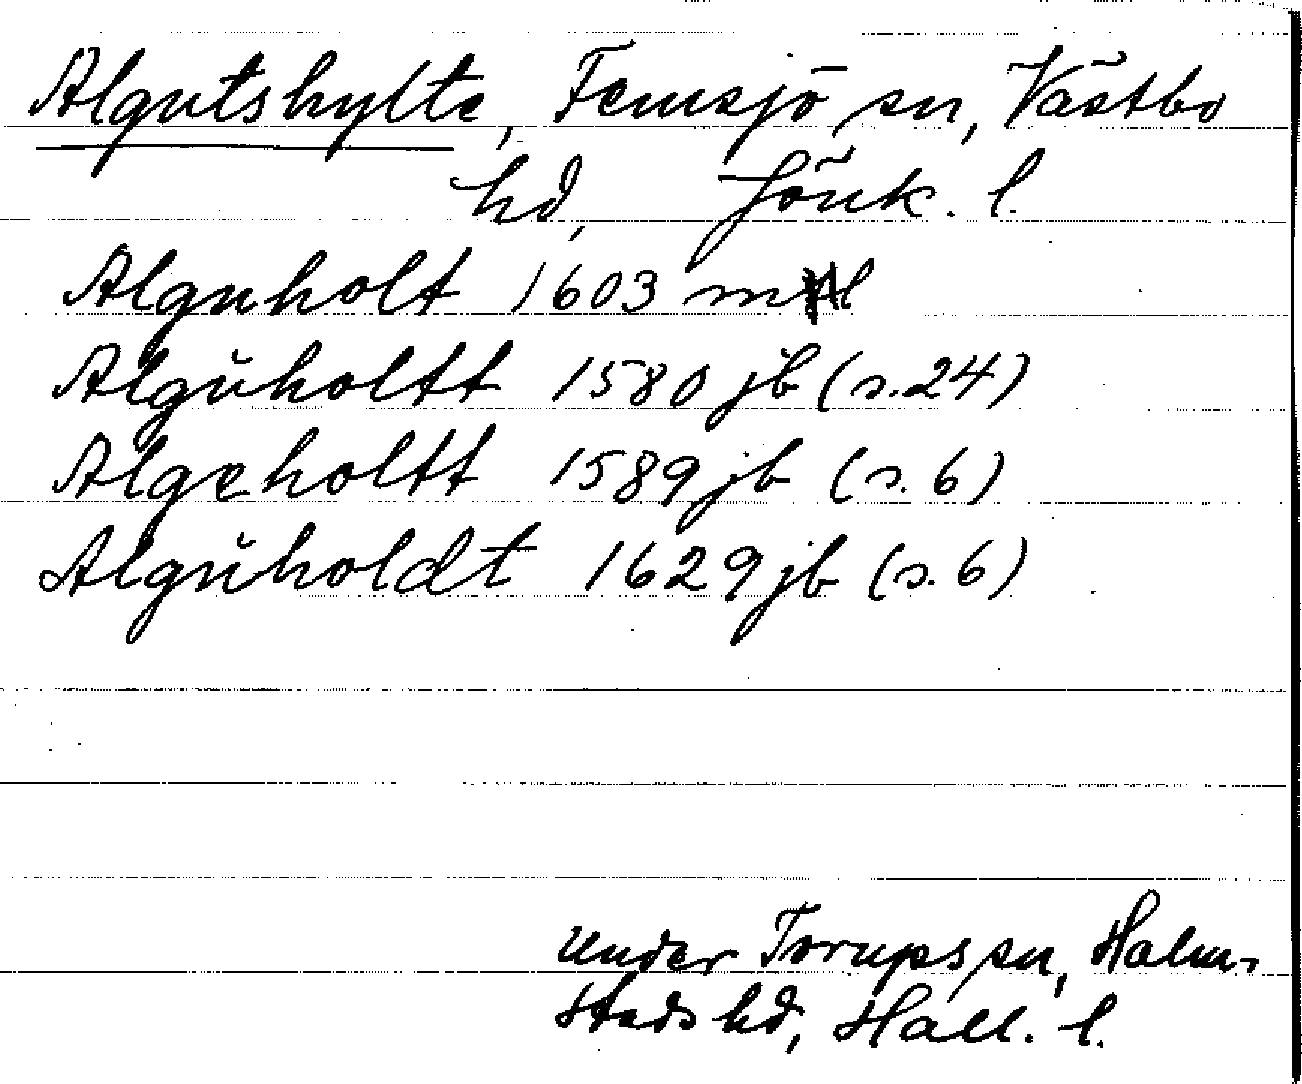 Algutshylte, Femsjö sn, Västbo
hd, Jönk. l.
Alguholt 1603 mtl
Algŭholtt 1580 jb (s. 24)
Algeholtt 1589 jb (s. 6)
Algŭholdt 1629 jb (s. 6)
under Torups sn, Halm-
stads hd, Hall. l.